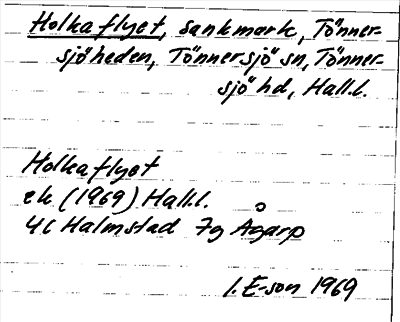 Holkaflyet, sankmark, Tönner-
sjöheden, Tönnersjö sn, Tönner-
sjö hd, Hall.l.
Holkaflyet
ek (1969) Hall.l.
4C Halmstad 7g Ågarp
I. E-son 1969